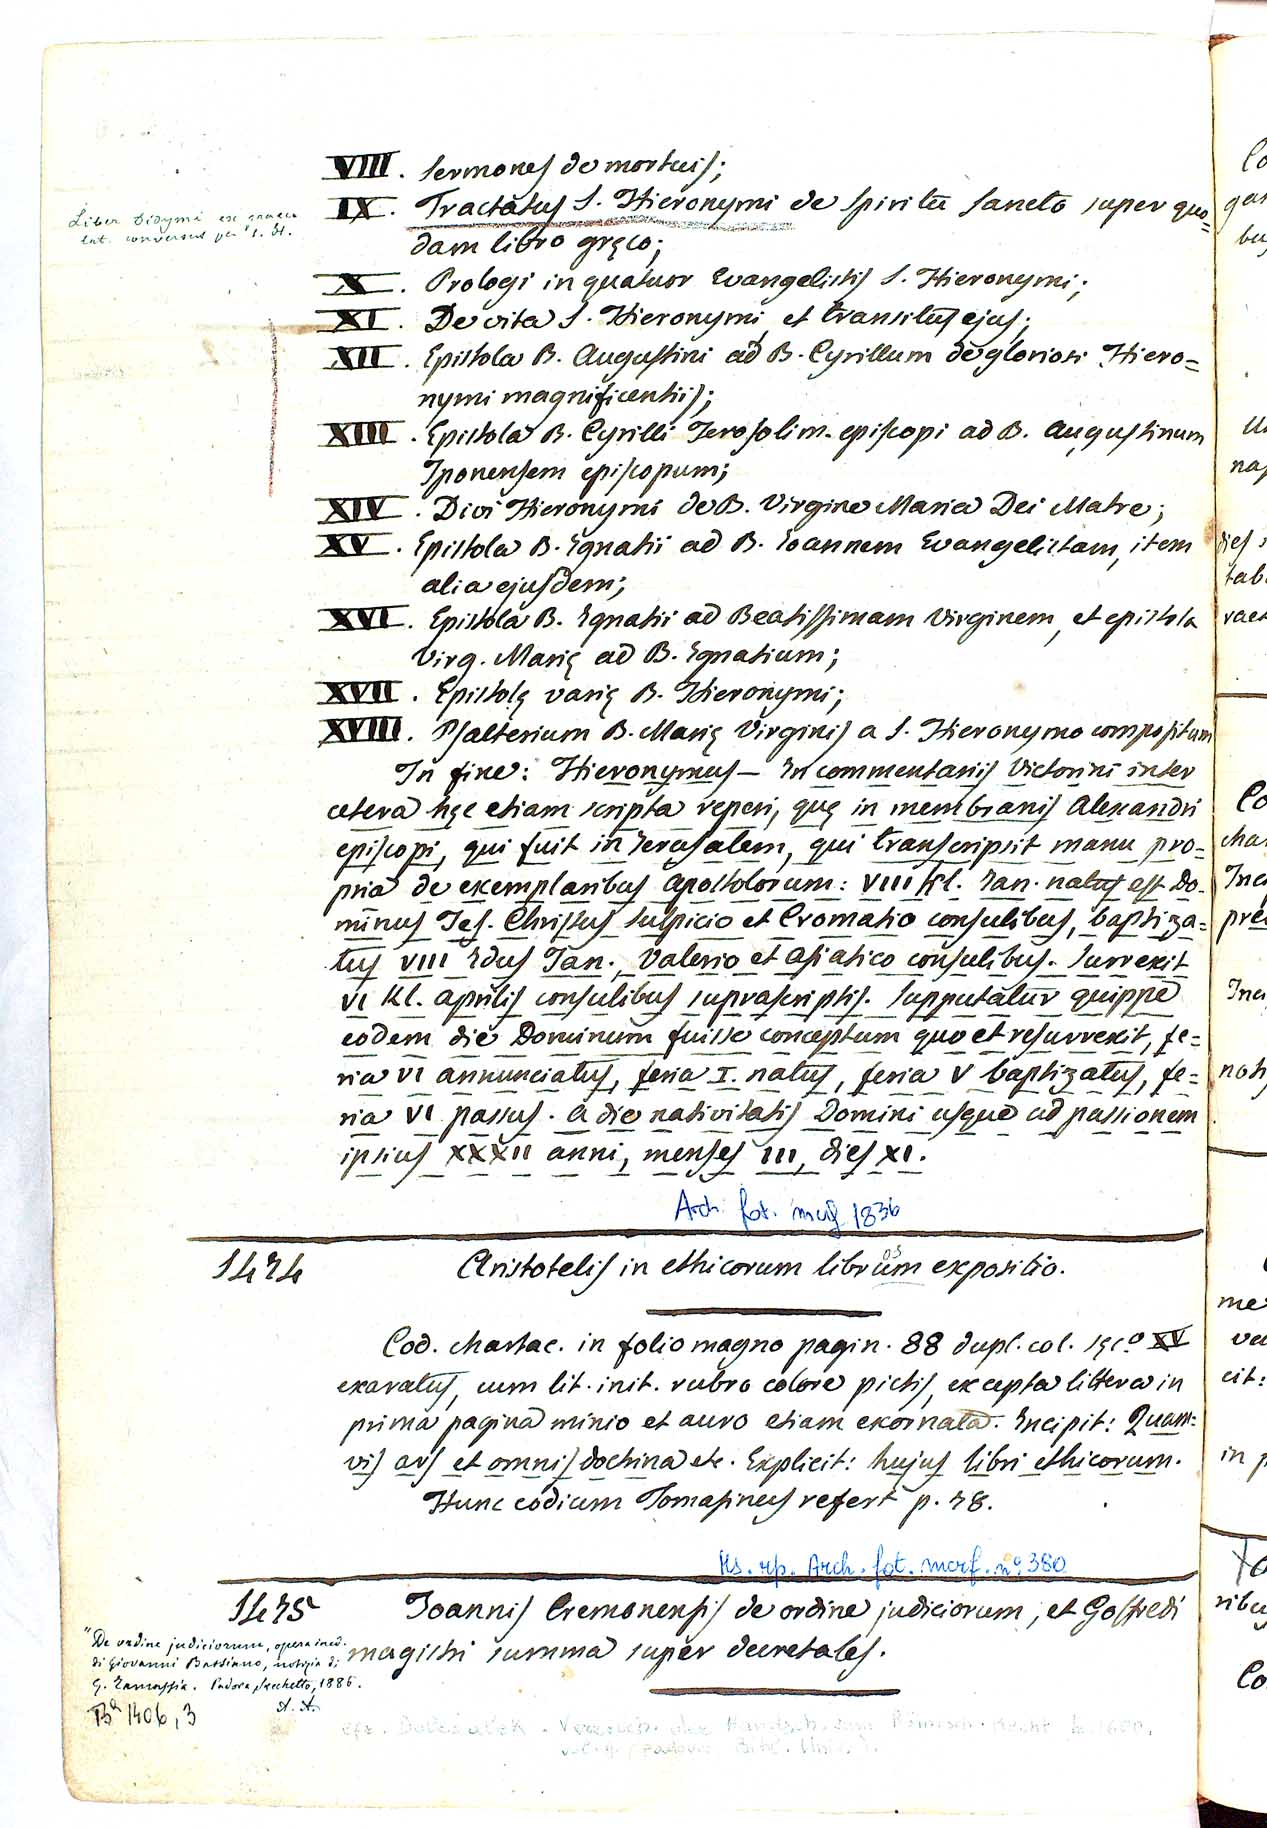 VIII. Sermones de mortuis;
Liber Didymi ex graeco
lat. conversus per S. H.
IX. Tractatus S. Hieronymi de Spiritu Sancto super quo=
dam libro gręco;
X. Prologi in quatuor Evangelistis S. Hieronymi;
XI. De vita S. Hieronymi, et transitus ejus;
XII. Epistola B. Augustini ad B. Cyrillum de gloriosi Hiero=
nymi magnificentiis;
XIII. Epistola B. Cyrilli Jerosolim. episcopi ad B. Augustinum
Iponensem episcopum;
XIV. Divi Hieronymi de B. Virgine Maria Dei Matre;
XV. Epistola B. Ignatii ad B. Ioannem Evangelistam, item
alia ejusdem;
XVI. Epistola B. Ignatii ad Beatissimam Virginem, et epistola
Virg. Marię ad B. Ignatium;
XVII. Epistolę varię B. Hieronymi;
XVIII. Psalterium B. Marię Virginis a S. Hieronymo compositum
In fine: Hieronymus — In commentariis Victorini inter
cetera hęc etiam scripta reperi, quę in membranis Alexandri
episcopi, qui fuit in Ierusalem, qui transcripsit manu pro=
pria de exemplaribus Apostolorum: VIII Kl. Ian. natus est Do=
minus Jes. Christus Sulpicio et Cromatio consulibus, baptiza=
tus VIII Idus Jan., Valerio et Asiatico consulibus. Surrexit
VI Kl. aprilis consulibus suprascriptis. Supputatur quippe
eodem die Dominum fuisse conceptum quo et resurrexit, fe=
ria VI annunciatus, feria I. natus, feria V baptizatus, fe=
ria VI passus. A die nativitatis Domini usque ad passionem
ipsius XXXII anni, menses III, dies XI.
Arch. fot. mcrf 1836
1474 Aristotelis in ethicorum librum expositio.
os
Cod. chartac. in folio magno pagin. 88 dupl. col. sęc.o XV
exaratus, cum lit. init. rubro colore pictis, excepta littera in
prima pagina minio et auro etiam exornata. Incipit: Quam=
vis ars et omnis doctrina etc. Explicit: hujus libri ethicorum.
Hunc codicum Tomasinus refert p. 28.
Ms. rip. Arch. fot. mcrf. n.o 380
1475 Joannis Cremonensis de ordine judiciorum, et Goffredi
magistri summa super decretales.
"De ordine judiciorum, opera ined.
di Giovanni Bassiano, notizia di
G. Tamassia. Padova, Sacchetto, 1886.
A. A.
Ba 1406, 3
cfr. Dolezalek - Verzeich. der Handsch. zum Römisch. Recht bis 1600,
vol. II (Padova, Bibl. Univ.).